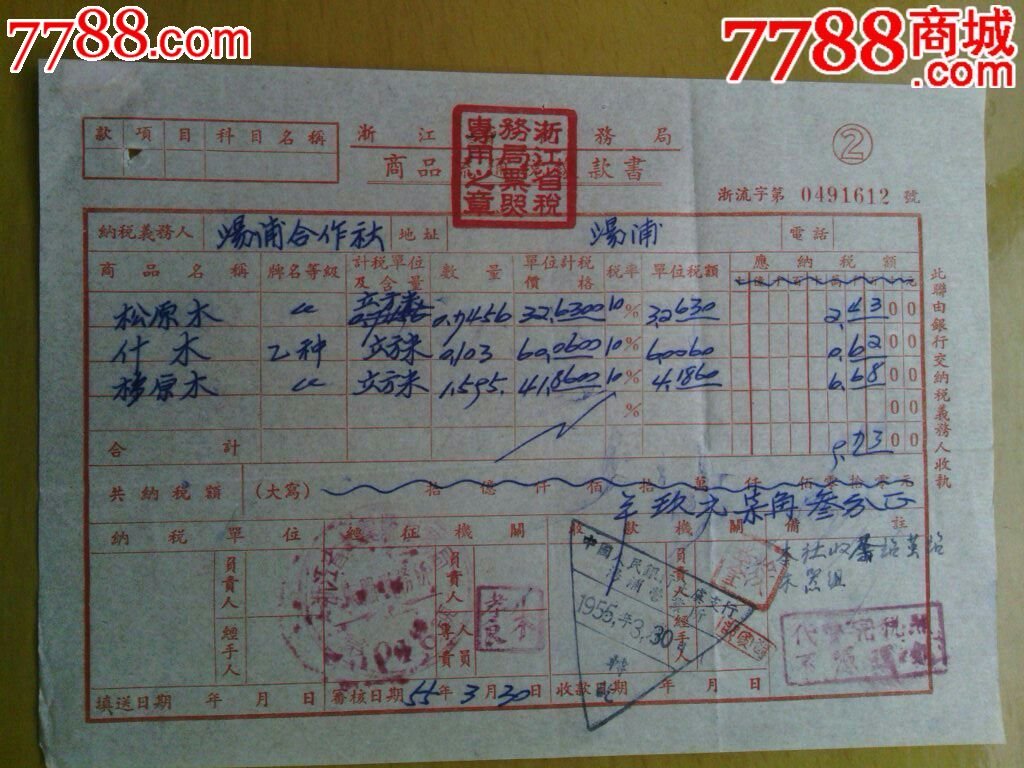 7788.com
7788商城
.com
款 項 目 科目名稱
浙江 務局
浙江省税務局票照專用之章
商品 款書
②
浙流字第 0491612 號
納税義務人 湯浦合作社 地址 湯浦 電話
商品名稱 牌名等級 計税單位及含量 數量 單位計税價格 税率 單位税額 應納税額
松原木 〃 立方米 0.7456 32.6300 10% 3.2630 2.43 00
什木 乙种 立方米 0.103 60.0600 10% 6.0060 0.62 00
杉原木 〃 立方米 1.595 41.8600 10% 4.1860 6.68 00
% 00
合計 9.73 00
共納税額 (大寫) 拾億仟佰拾萬仟佰零拾零元
玖元柒角叁分正
納税單位 總征機關 收款機關 備註
負責人 經手人
負責人 專責人員
負責人 經手人
本社收
木器組
1955年3.30
代
填送日期 年 月 日 審核日期 55年3月30日 收款日期 年 月 日
此聯由銀行交納税義務人收執